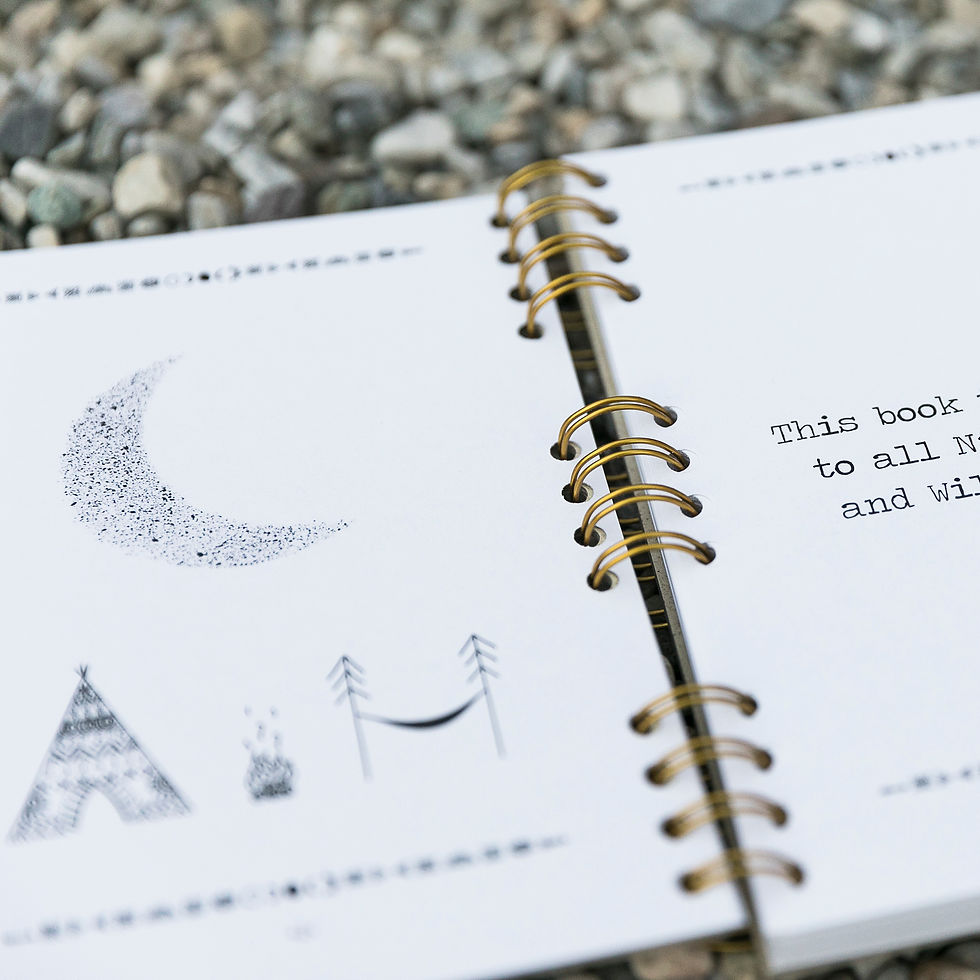 This book
to all
and